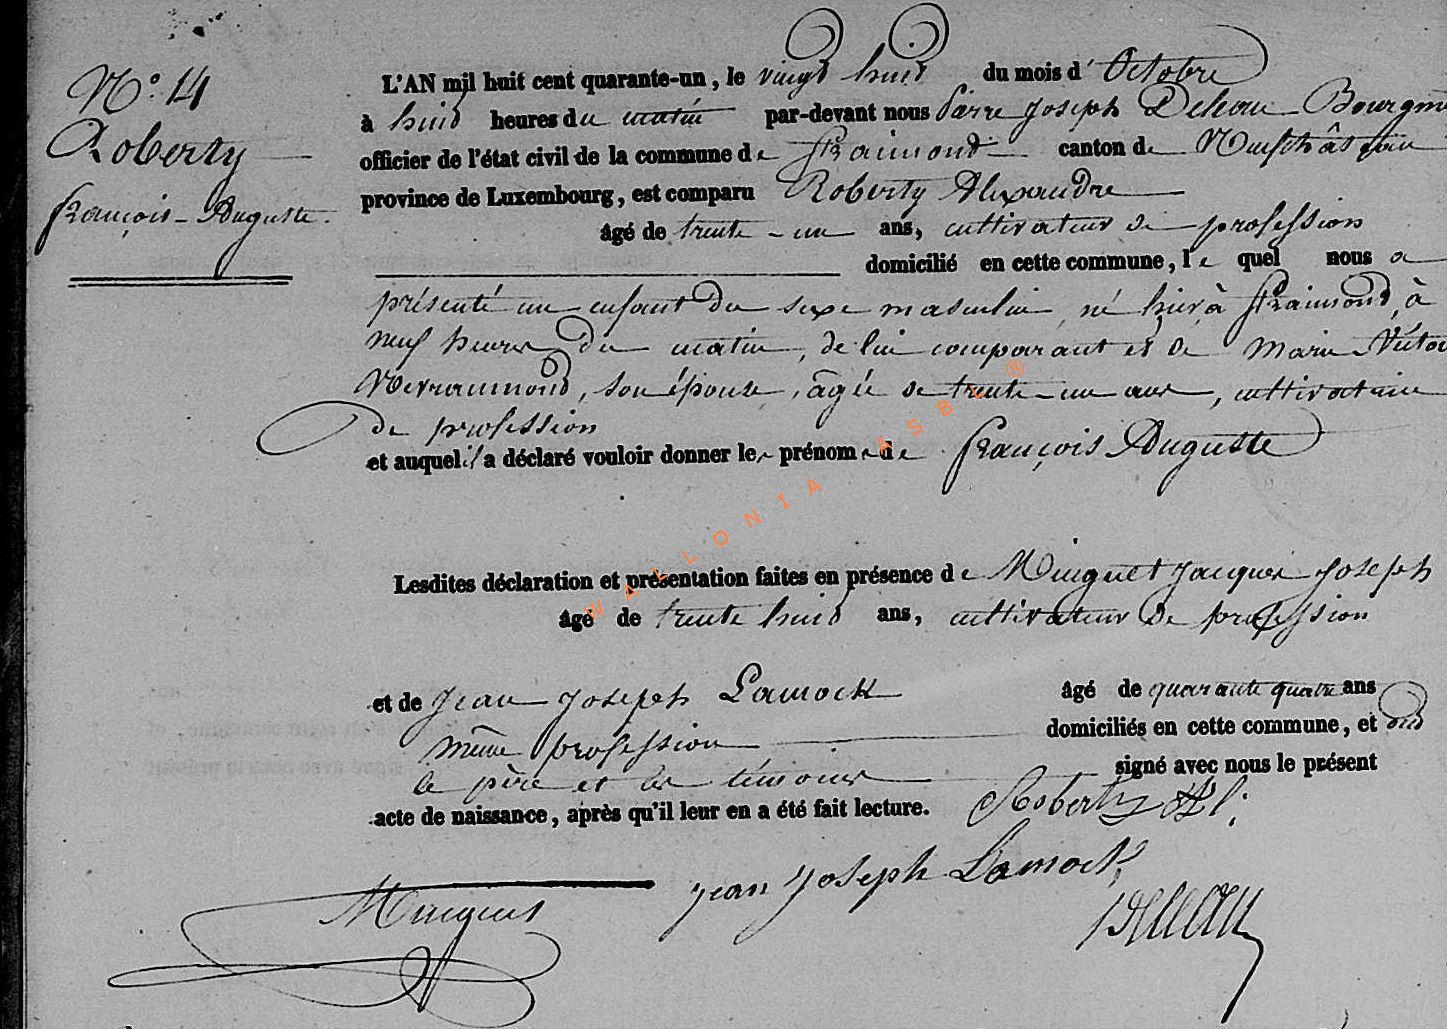 N.° 14
Roberty
François-Auguste.
L'AN mil huit cent quarante-un, le vingt huit du mois d' Octobre
à huit heures du matin par-devant nous Pierre Joseph Dehou Bourgm
officier de l'état civil de la commune de Straimont canton de Neufchâteau
province de Luxembourg, est comparu Roberty Alexandre
âgé de trente-un ans, cultivateur de profession
domicilié en cette commune, le quel nous a
présenté un enfant du sexe masculin, né hier à Straimont, à
neuf heures du matin, de lui comparant et de Marie Victoi
son épouse, âgée de trente-un ans, cultivatrice
de profession
et auquel il a déclaré vouloir donner les prénoms de François Auguste
Lesdites déclaration et présentation faites en présence de Minguet Jacques Joseph
âgé de trente huit ans, cultivateur de profession
et de Jean Joseph Lamock âgé de quarante quatre ans
même profession domiciliés en cette commune, et ont
le père et les témoins signé avec nous le présent
acte de naissance, après qu'il leur en a été fait lecture. Roberty Al:
Jean Joseph Lamock
Minguet
WALLONIA ASBL ®